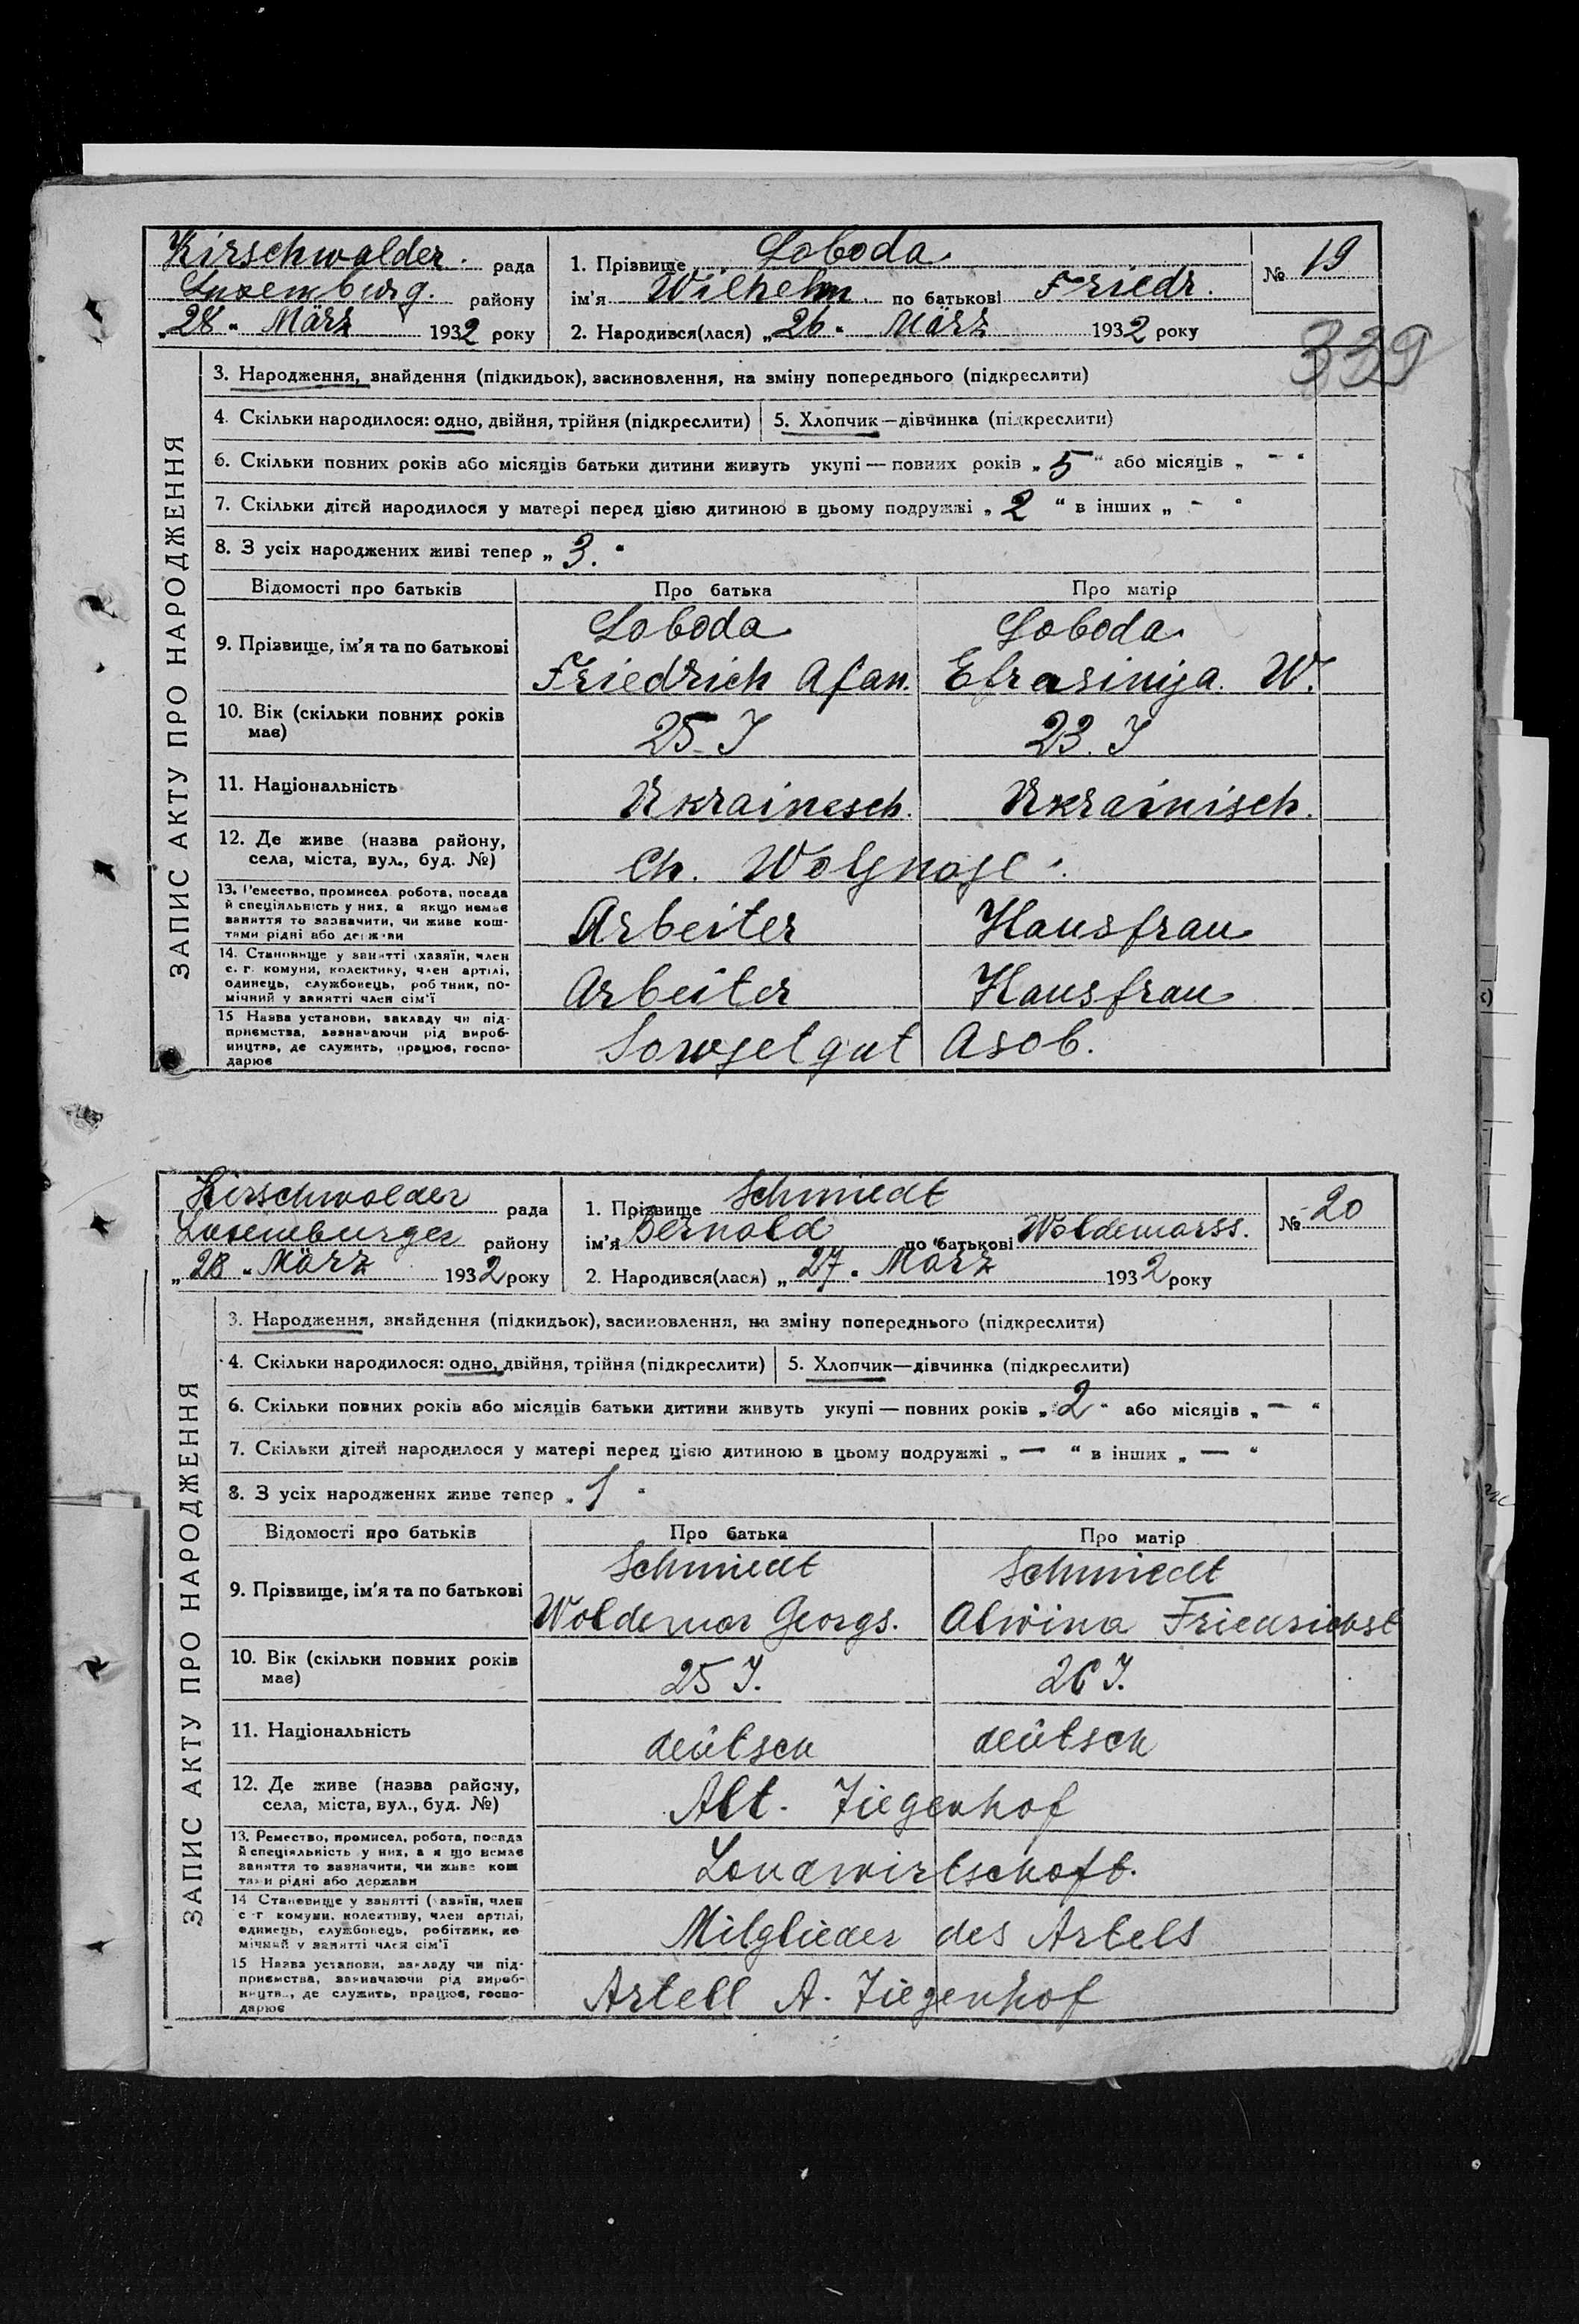 Kirschwalder. рада
Luxemburg. району
„28“ März 1932 року
1. Прізвище Loboda
ім'я Wilhelm. по батькові Friedr.
2. Народився(лася) „26“ März 1932 року
№ 19
339
ЗАПИС АКТУ ПРО НАРОДЖЕННЯ
3. Народження, знайдення (підкидьок), засиновлення, на зміну попереднього (підкреслити)
4. Скільки народилося: одно, двійня, трійня (підкреслити) 5. Хлопчик—дівчинка (підкреслити)
6. Скільки повних років або місяців батьки дитини живуть укупі — повних років „5“ або місяців „-“
7. Скільки дітей народилося у матері перед цією дитиною в цьому подружжі „2“ в інших „-“
8. З усіх народжених живі тепер „3.“
Відомості про батьків Про батька Про матір
9. Прізвище, ім'я та по батькові
Loboda Loboda
Friedrich Afan. Efrasinija. W.
10. Вік (скільки повних років
має)
25 J 23. J
11. Національність Ukrainesch. Ukrainisch.
12. Де живе (назва району,
села, міста, вул., буд. №)
Ch.
13. Ремество, промисел, робота, посада
й спеціяльність у них, а якщо немає
заняття то зазначити, чи живе кош-
тами рідні або держави
Arbeiter Hausfrau
14. Становище у занятті (хазяїн, член
с. г. комуни, колективу, член артілі,
одинець, службовець, робітник, по-
мічний у занятті член сім'ї
Arbeiter Hausfrau
15 Назва установи, закладу чи під-
приємства, зазначаючи рід вироб-
ництва, де служить, працює, госпо-
дарює
Sowjetgut Asob.
Kirschwalder рада
Luxemburger району
„28“ März 1932 року
1. Прізвище Schmiedt
ім'я Bernold по батькові Woldemarss.
2. Народився(лася) „27“ März 1932 року
№ 20
ЗАПИС АКТУ ПРО НАРОДЖЕННЯ
3. Народження, знайдення (підкидьок), засиновлення, на зміну попереднього (підкреслити)
4. Скільки народилося: одно, двійня, трійня (підкреслити) 5. Хлопчик—дівчинка (підкреслити)
6. Скільки повних років або місяців батьки дитини живуть укупі — повних років „2“ або місяців „—“
7. Скільки дітей народилося у матері перед цією дитиною в цьому подружжі „—“ в інших „—“
8. З усіх народжених живе тепер „1“
Відомості про батьків Про батька Про матір
9. Прізвище, ім'я та по батькові
Schmiedt Schmiedt
Woldemar Georgs. Alwina Friedrichst
10. Вік (скільки повних років
має)
25 J. 26 J.
11. Національність deutsch deutsch
12. Де живе (назва району,
села, міста, вул., буд. №)
Alt. Ziegenhof
13. Ремество, промисел, робота, посада
й спеціяльність у них, а якщо немає
заняття то зазначити, чи живе кош
тами рідні або держави
Landwirtschaft.
14 Становище у занятті (хазяїн, член
с-г комуни, колективу, член артілі,
одинець, службовець, робітник, по
мічний у занятті член сім'ї
Mitglieder des Artels
15 Назва установи, закладу чи під-
приємства, зазначаючи рід вироб-
ництва, де служить, працює, госпо-
дарює
Artell A. Ziegenhof